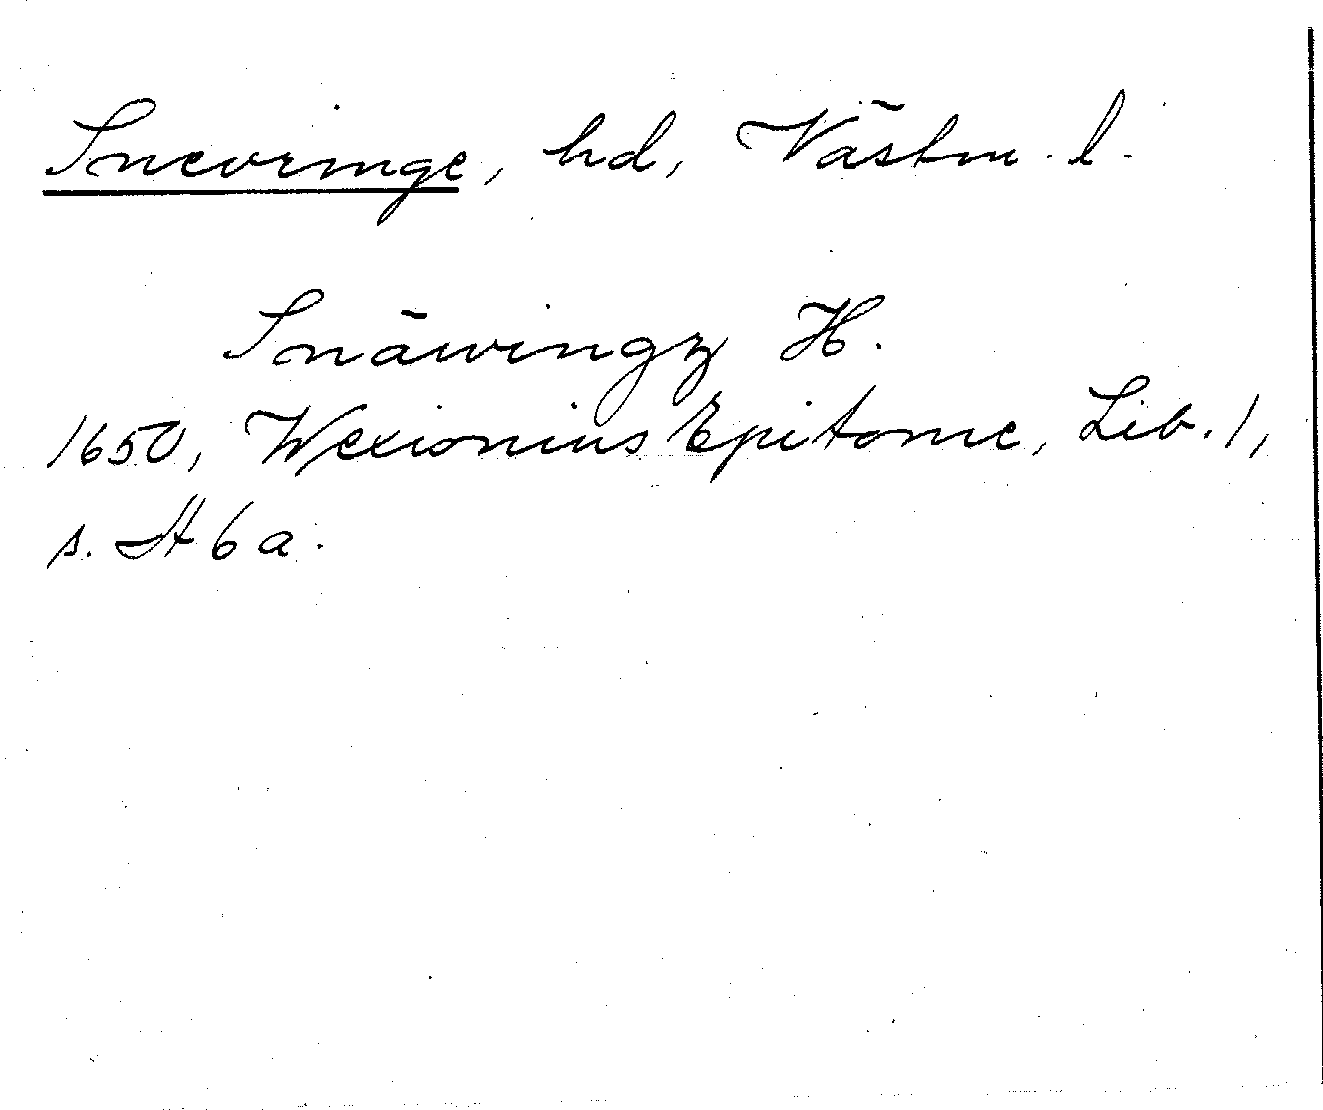 Snevringe, hd, Västm. l.
Snäwingz H.
1650, Wexionius Epitome, Lib. 1,
s. H 6 a.